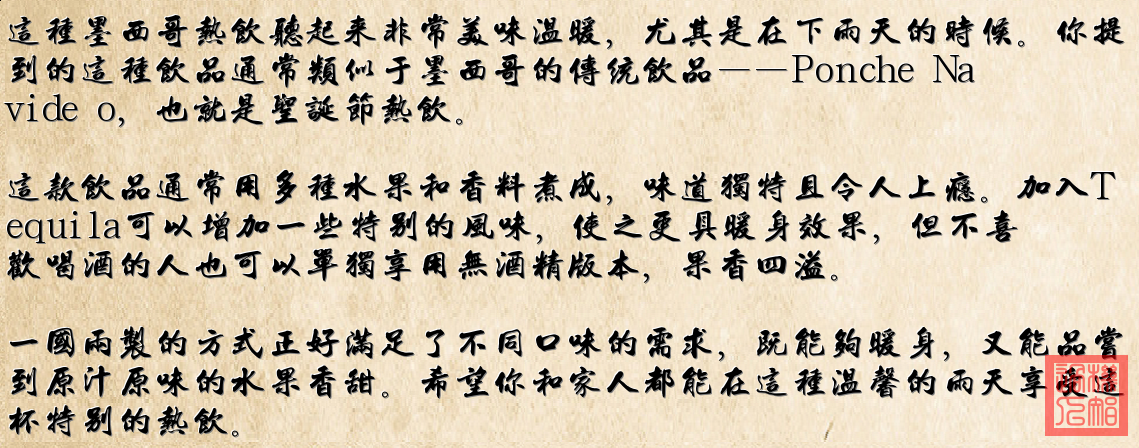 這種墨西哥熱飲聽起來非常美味溫暖，尤其是在下雨天的時候。你提
到的這種飲品通常類似于墨西哥的傳统飲品——Ponche Na
vide o，也就是聖誕節熱飲。
這款飲品通常用多種水果和香料煮成，味道獨特且令人上癮。加入T
equila可以增加一些特别的風味，使之更具暖身效果，但不喜
歡喝酒的人也可以單獨享用無酒精版本，果香四溢。
一國兩製的方式正好滿足了不同口味的需求，既能夠暖身，又能品嘗
到原汁原味的水果香甜。希望你和家人都能在這種溫馨的雨天享受這
杯特别的熱飲。